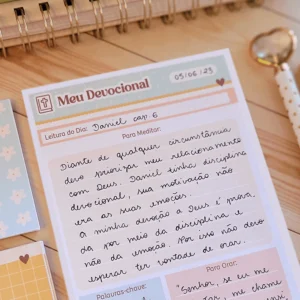 Meu Devocional
05/06/23
Leitura do Dia: Daniel cap. 6
Para Meditar:
Diante de qualquer circunstância
devo priorizar meu relacionamento
com Deus. Daniel tinha disciplina
devocional, sua motivação não
era as suas emoções.
A minha devoção a Deus é prova
da por meio da disciplina e
não da emoção. Por isso não devo
esperar ter vontade de orar.
Palavras-chave:
Para Orar:
"Senhor, se eu me
me chame